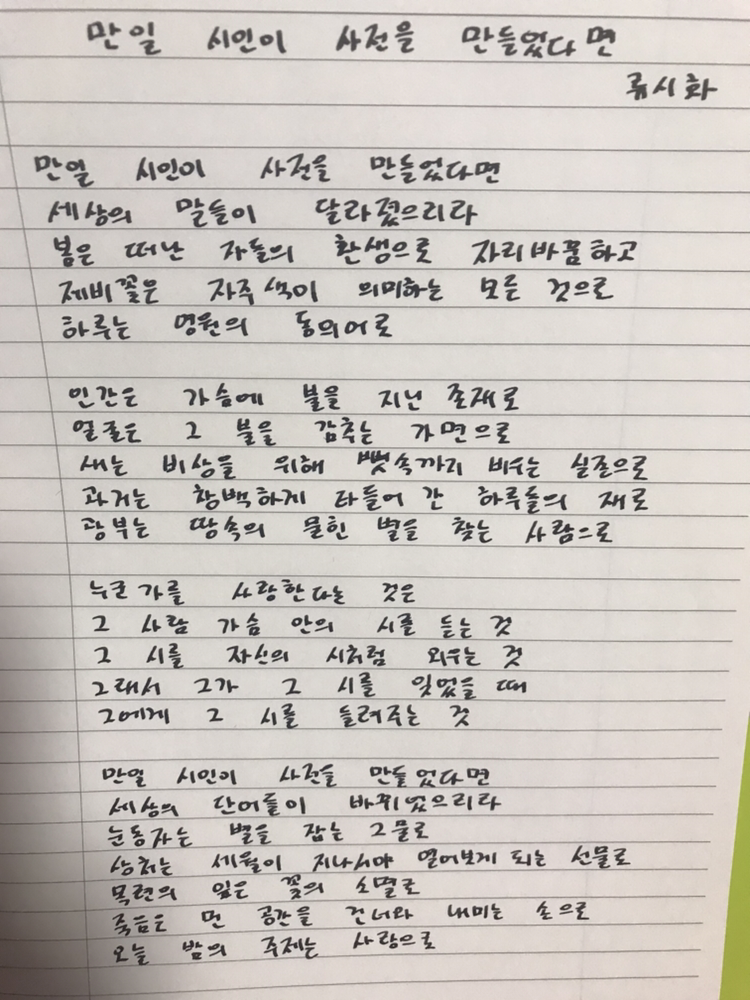 만일 시인이 사전을 만들었다면
류시화
만일 시인이 사전을 만들었다면
세상의 말들이 달라졌으리라
봄은 떠난 자들의 환생으로 자리바꿈하고
제비꽃은 자주색이 의미하는 모든 것으로
하루는 영원의 동의어로
인간은 가슴에 불을 지닌 존재로
얼굴은 그 불을 감추는 가면으로
새는 비상을 위해 뼛속까지 비우는 실존으로
과거는 창백하게 타들어 간 하루들의 재로
광부는 땅속의 묻힌 별을 찾는 사람으로
누군가를 사랑한다는 것은
그 사람 가슴 안의 시를 듣는 것
그 시를 자신의 시처럼 외우는 것
그래서 그가 그 시를 잊었을 때
그에게 그 시를 들려주는 것
만일 시인이 사전을 만들었다면
세상의 단어들이 바뀌었으리라
눈동자는 별을 잡는 그물로
상처는 세월이 지나서야 열어보게 되는 선물로
목련의 잎은 꽃의 소멸로
죽음은 먼 공간을 건너와 내미는 손으로
오늘 밤의 주제는 사랑으로